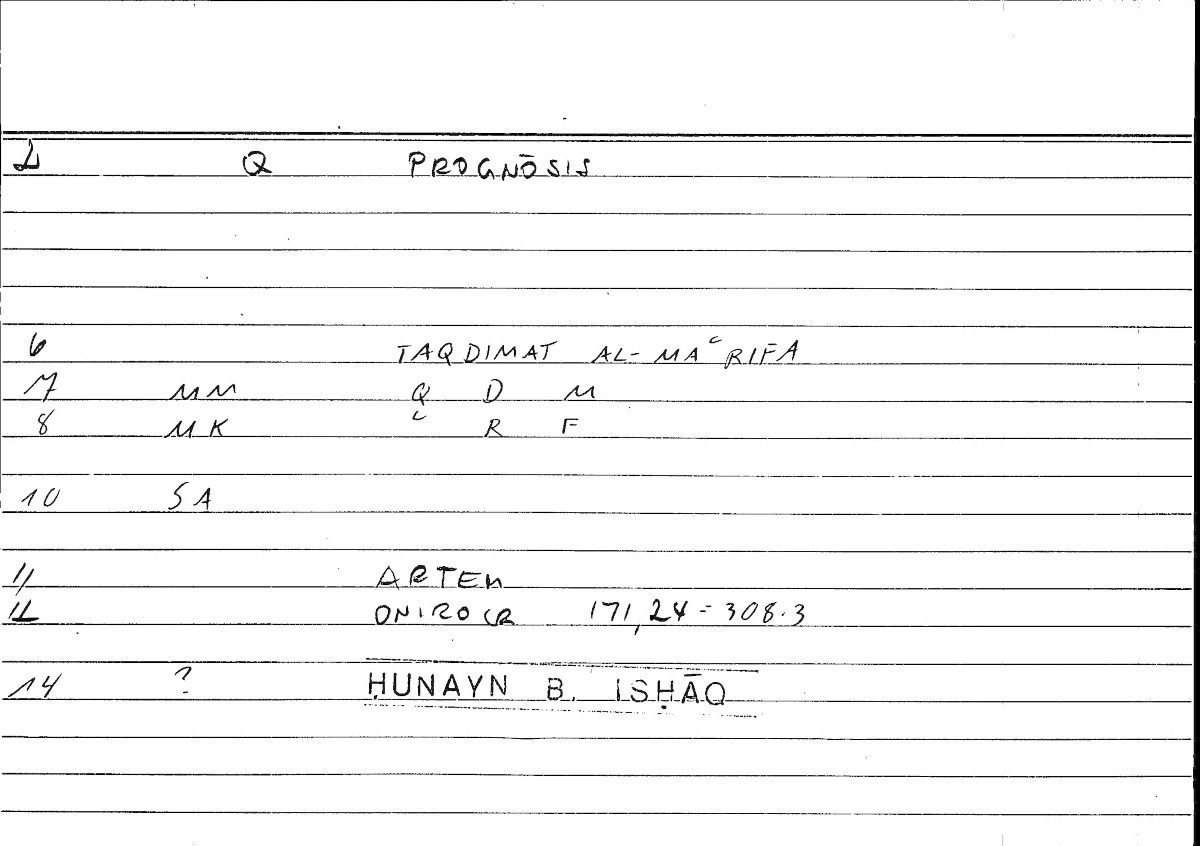 1 Q PROGNŌSIS
6 TAQDIMAT AL-MAʿRIFA
7 MM Q D M
8 MK ʿ R F
10 SA
11 ARTEM
12 ONIROCR 171,24 = 308.3
14 ? ḤUNAYN B. ISḤĀQ